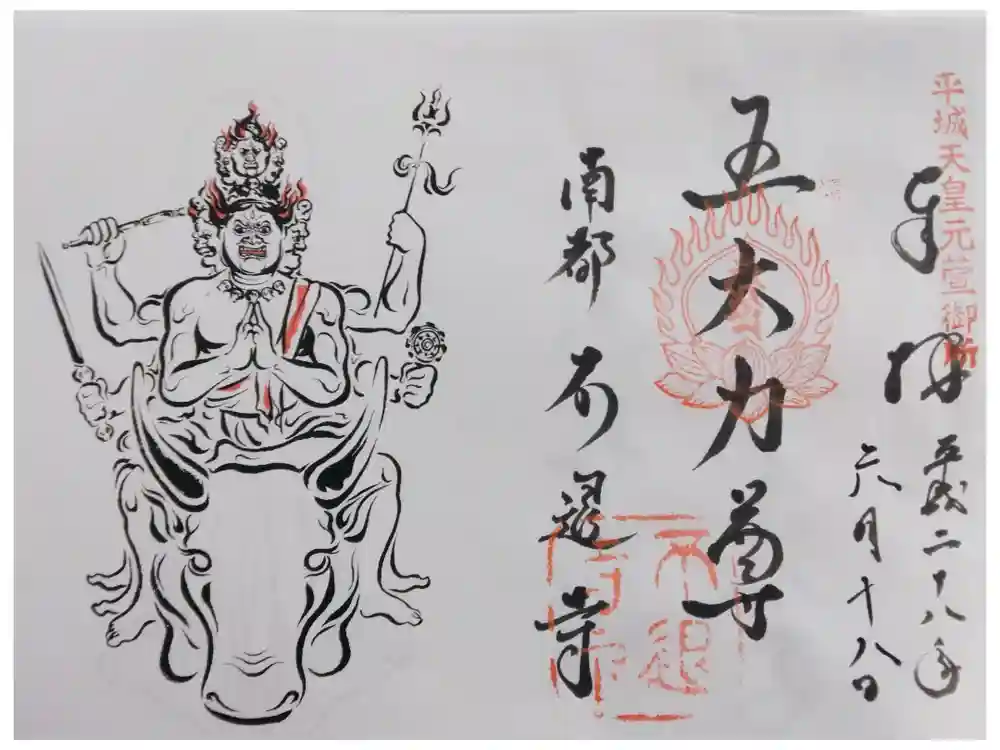 平城天皇元萱御所
奉拝
平成二十八年
六月十八日
五大力尊
南都 不退寺
不退
寺印